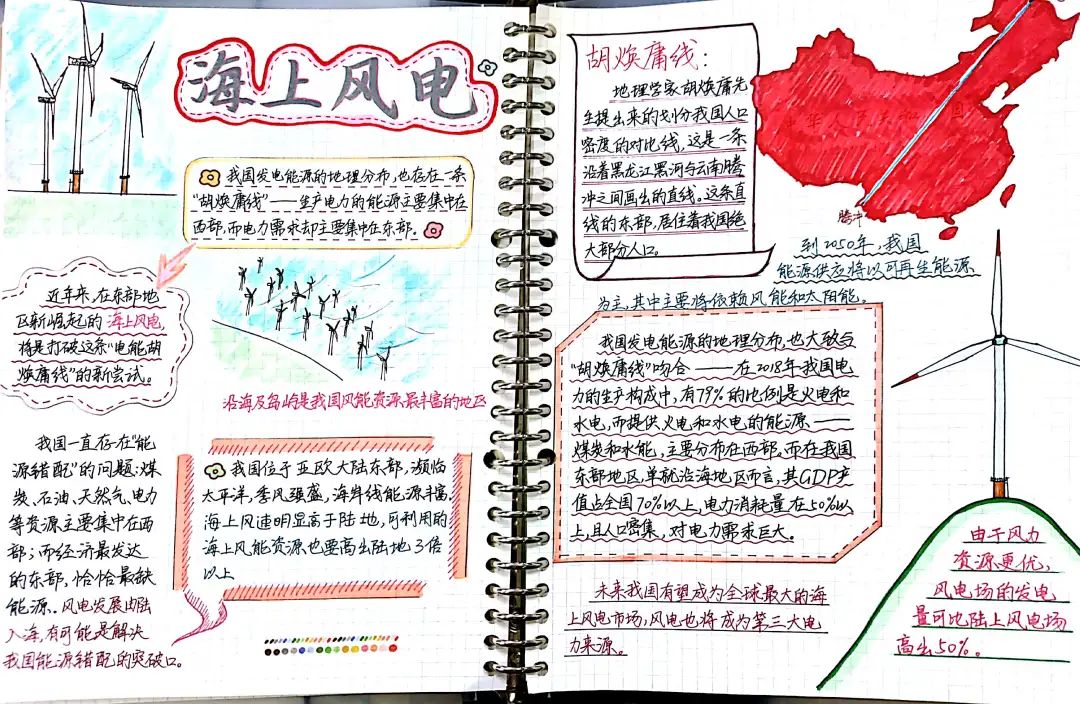 海上风电
我国发电能源的地理分布,也存在一条
“胡焕庸线”——生产电力的能源主要集中在
西部,而电力需求却主要集中在东部。
近年来,在东部地
区新崛起的海上风电,
将是打破这条“电能胡
焕庸线”的新尝试。
沿海及岛屿是我国风能资源最丰富的地区
我国一直存在“能
源错配”的问题:煤
炭、石油、天然气、电力
等资源主要集中在西
部;而经济最发达
的东部,恰恰最缺
能源。风电发展由陆
入海,有可能是解决
我国能源错配的突破口。
我国位于亚欧大陆东部,濒临
太平洋,季风强盛,海岸线能源丰富,
海上风速明显高于陆地,可利用的
海上风能资源也要高出陆地3倍
以上
胡焕庸线:
地理学家胡焕庸先
生提出来的划份我国人口
密度的对比线,这是一条
沿着黑龙江黑河与云南腾
冲之间画出的直线。这条直
线的东部,居住着我国绝
大部分人口。
中华人民共和国
腾冲
到2050年,我国
能源供应将以可再生能源
为主,其中主要将依赖风能和太阳能。
我国发电能源的地理分布,也大致与
“胡焕庸线”吻合——在2018年我国电
力的生产构成中,有79%的比例是火电和
水电,而提供火电和水电的能源——
煤炭和水能,主要分布在西部,而在我国
东部地区,单就沿海地区而言,其GDP产
值占全国70%以上,电力消耗量在50%以
上,且人口密集,对电力需求巨大。
未来我国有望成为全球最大的海
上风电市场,风电也将成为第三大电
力来源。
由于风力
资源更优,
风电场的发电
量可比陆上风电场
高出50%。